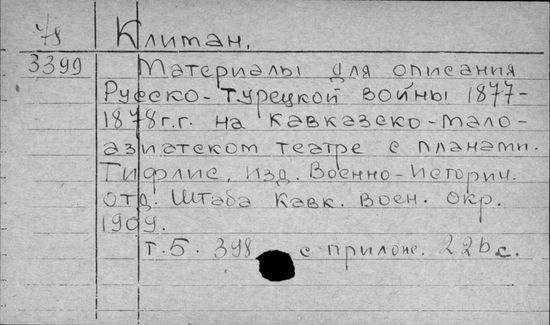 78 Клитан.
3399 Материалы для описания
Русско-турецкой войны 1877-
1878г.г. на кавказско-мало-
азиатском театре с планами.
Тифлис, Изд. Военно-Историч.
отд. Штаба Кавк. Воен. окр.
1909.
т.5. 398 с прилож. 226 с.